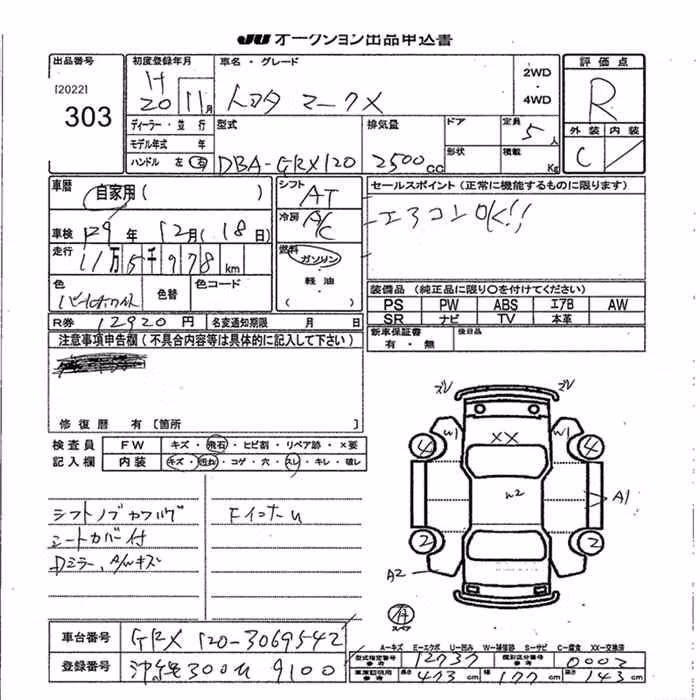 JU オークション出品申込書
出品番号
[2022]
303
初度登録年月
H
20 11月
車名・グレード
トヨタ マークX
2WD
・
4WD
評価点
R
外装 内装
C
ディーラー・並 行
モデル年式 年
ハンドル 左 右
型式
DBA-GRX120
排気量
2500cc
ドア
形状
定員
5人
積載
Kg
車歴
自家用( )
車検
H29年 12月(18日)
走行
11万5千978km
色
パールホワイト
色替
色コード
シフト
AT
冷房
A/C
燃料
ガソリン
・
軽油
( )
セールスポイント(正常に機能するものに限ります)
エアコンOK!!
装備品(純正品に限り○を付けてください)
PS PW ABS エアB AW
SR ナビ TV 本革
新車保証書
有・無
後日品
R券 12920円
名変通知期限 月 日
注意事項申告欄(不具合内容等は具体的に記入して下さい)
修復歴 有 [箇所 ]
検査員
記入欄
FW キズ・飛石・ヒビ割・リペア跡・×要
内装 キズ・汚れ・コゲ・穴・スレ・キレ・破レ
シフトノブ
シートカバー付
Dミラー、A/Wキズ
ズレ ズレ
W1 W1
4 XX 4
W2
A1
2 2
A2
A-キズ E-エクボ U-凹み W-補修跡 S-サビ C-腐食 XX-交換済
車台番号
GRX120-3069542
登録番号
沖縄300 9100
型式指定番号
参考
12737
類別区分番号
参考
0003
長さ 473cm 幅 177cm 高さ 143cm